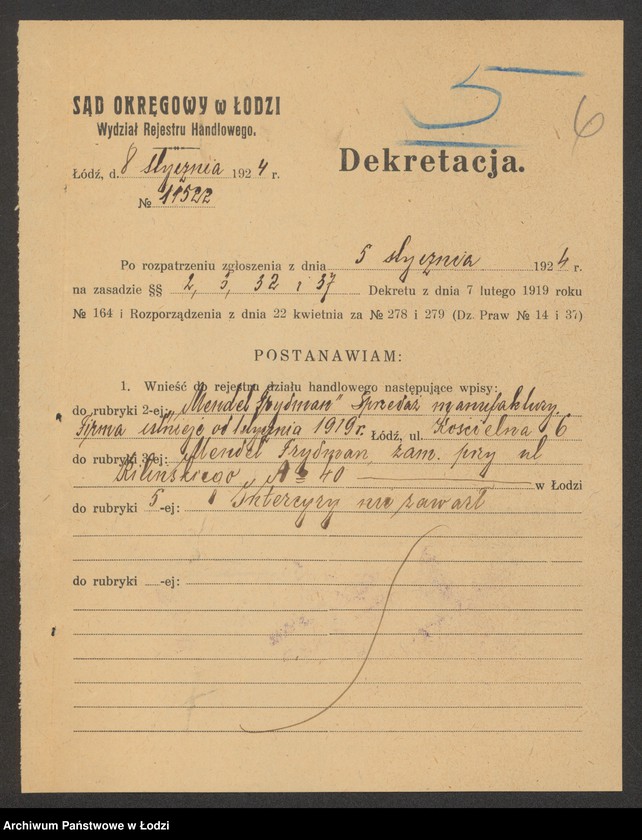 5
6
SĄD OKRĘGOWY w ŁODZI
Wydział Rejestru Handlowego.
Dekretacja.
Łódź, d. 8 stycznia 1924 r.
№ 11522
Po rozpatrzeniu zgłoszenia z dnia 5 stycznia 1924 r.
na zasadzie §§ 2, 3, 32 i 37 Dekretu z dnia 7 lutego 1919 roku
№ 164 i Rozporządzenia z dnia 22 kwietnia za № 278 i 279 (Dz. Praw № 14 i 37)
POSTANAWIAM:
1. Wnieść do rejestru działu handlowego następujące wpisy:
do rubryki 2-ej: „Mendel Frydman" Sprzedaż manufaktury.
Firma istnieje od 1 stycznia 1919 r. Łódź, ul. Kościelna 6
do rubryki 3-ej: Mendel Frydman, zam. przy ul
Kilińskiego № 40 w Łodzi
do rubryki 5-ej: Intercyzy nie zawarł
do rubryki -ej:
Archiwum Państwowe w Łodzi